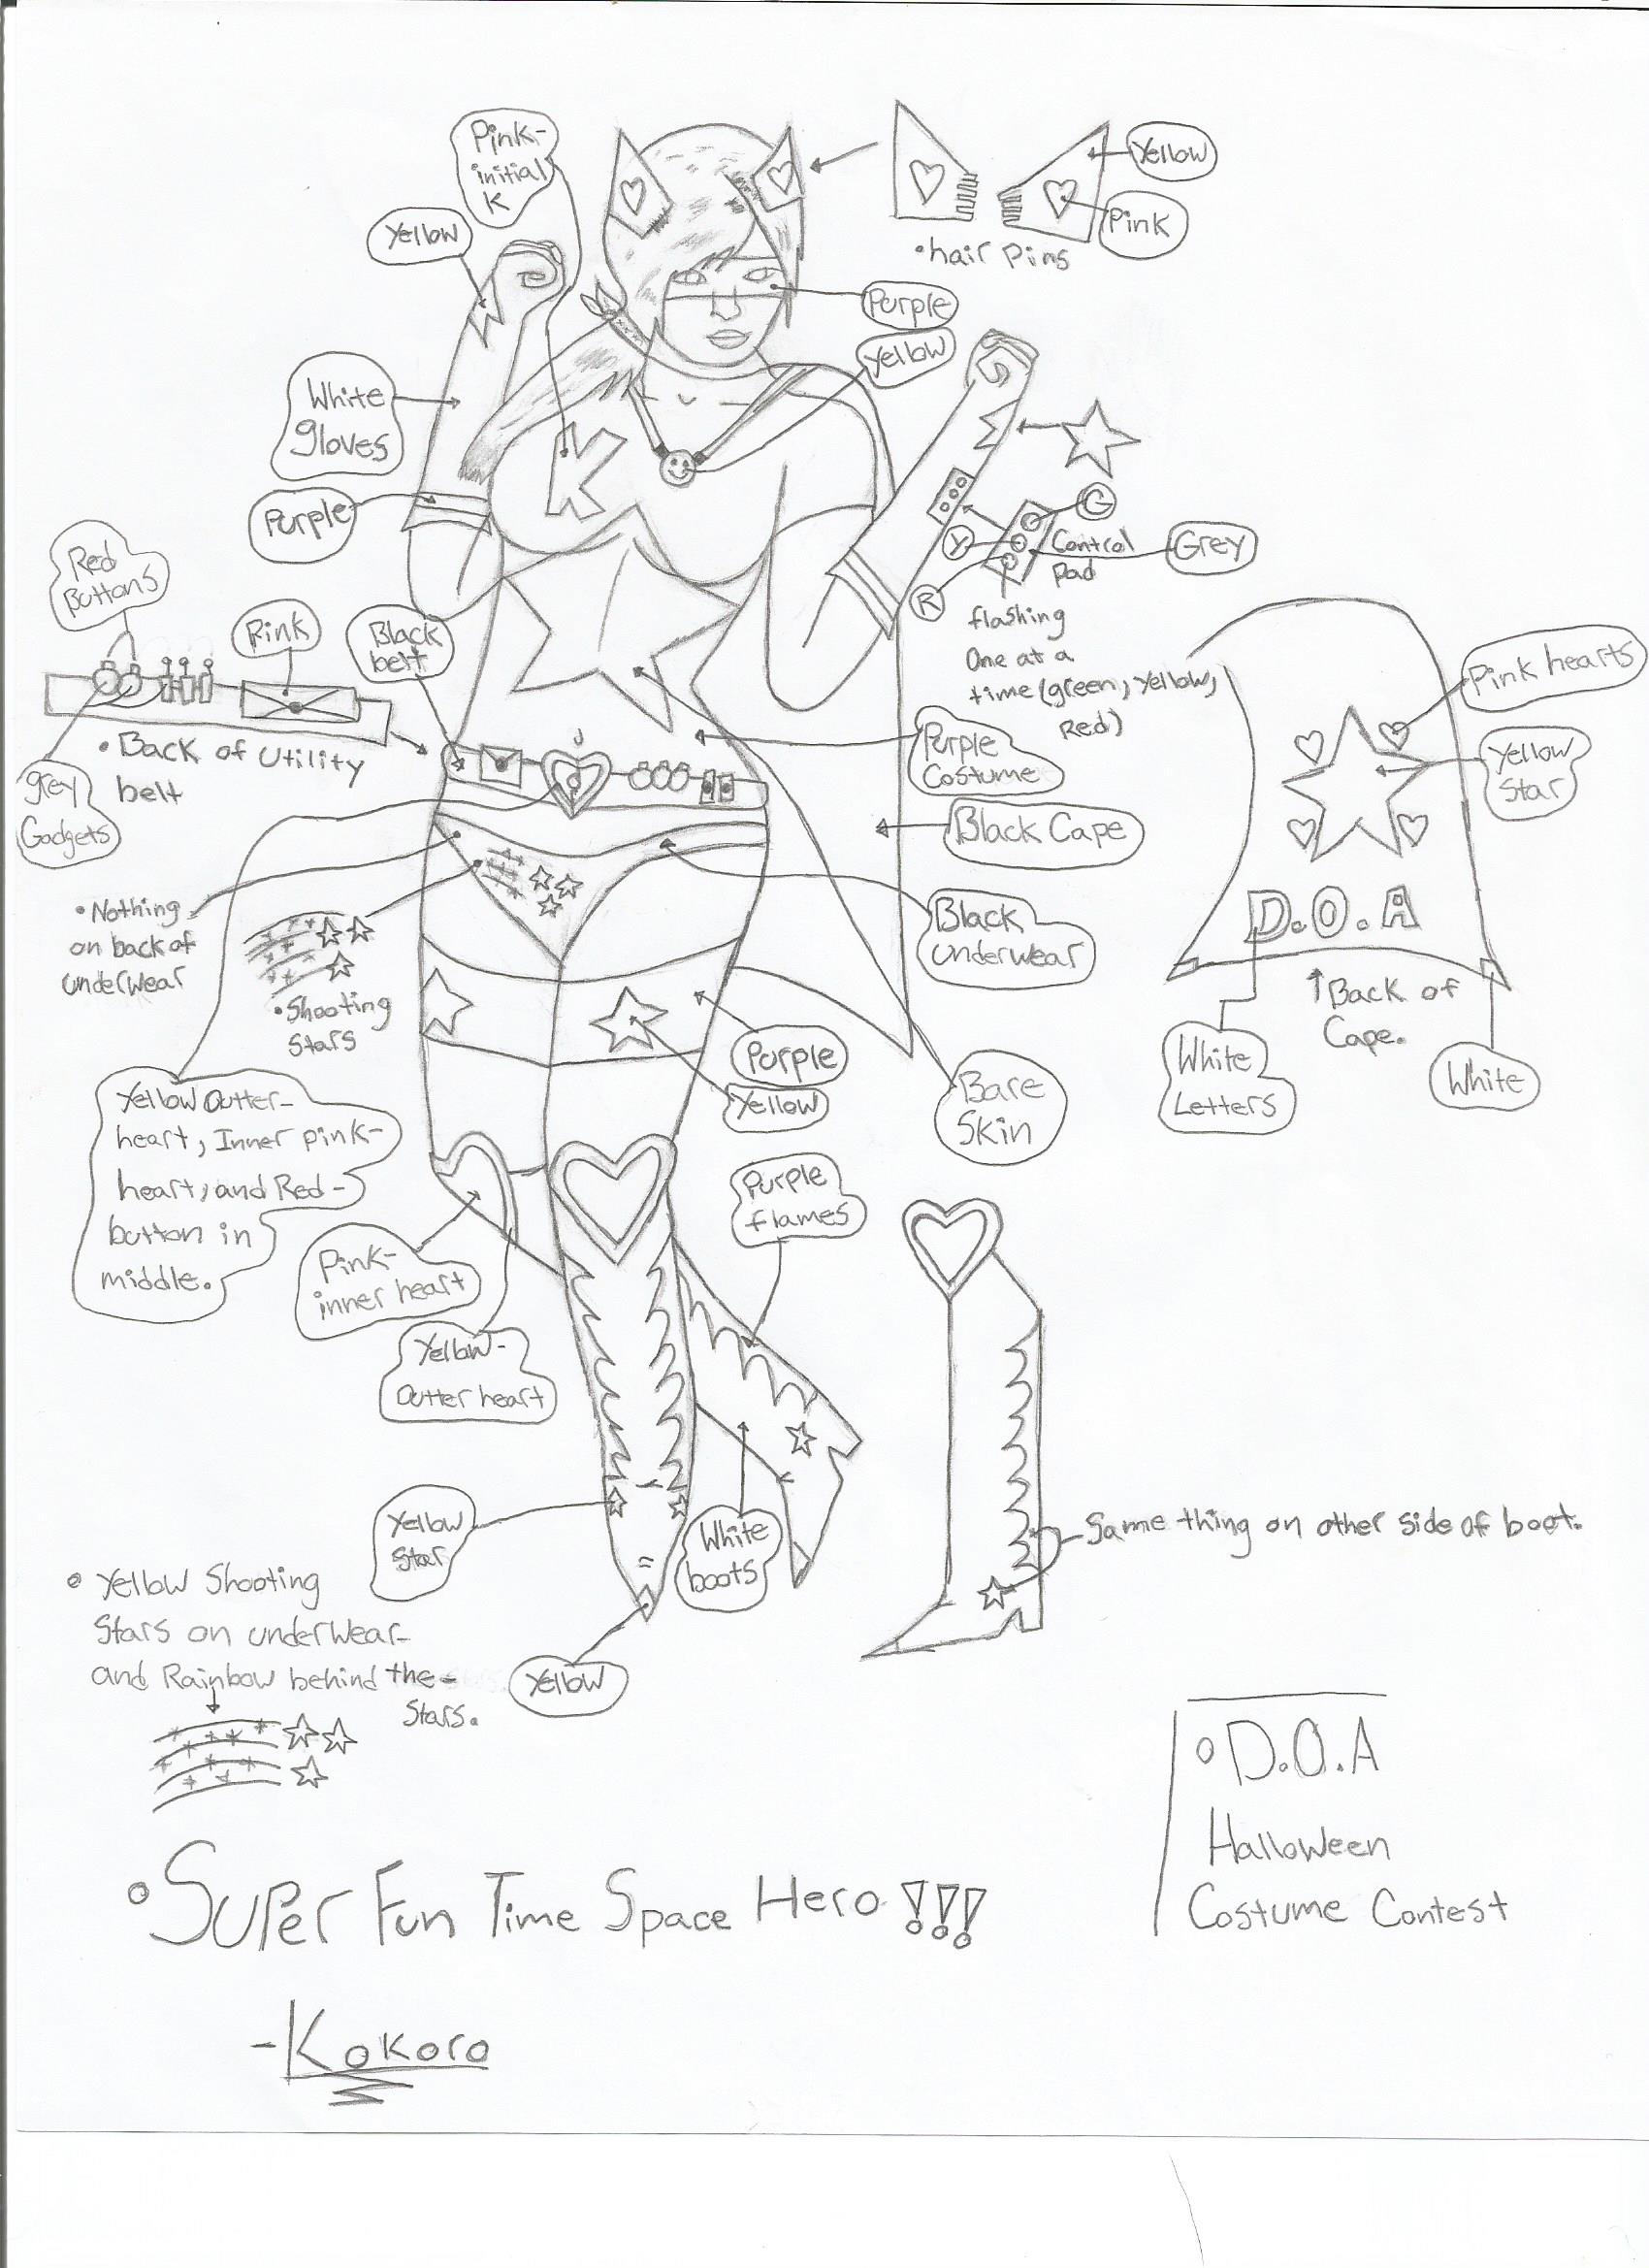 Pink-
initial
K
Yellow
Yellow
Pink
•hair Pins
Purple
Yellow
White
gloves
Purple
K
G
Y
R
Control
Pad
Grey
flashing
One at a
time (green, Yellow,
Red)
Red
Buttons
Pink
Black
belt
• Back of Utility
belt
grey
Gadgets
Purple
Costume
Black Cape
Pink hearts
Yellow
Star
D.O.A
Back of
Cape.
White
Letters
White
•Nothing
on back of
underwear
•Shooting
Stars
Black
underwear
Purple
Yellow
Bare
Skin
Yellow Outter-
heart, Inner pink-
heart, and Red-
button in
middle.
Pink-
inner heart
Yellow-
Outter heart
Purple
flames
Yellow
Star
White
boots
Same thing on other side of boot.
Yellow
• Yellow Shooting
Stars on underwear-
and Rainbow behind the-
Stars.
• Super Fun Time Space Hero!!!
-Kokoro
• D.O.A
Halloween
Costume Contest